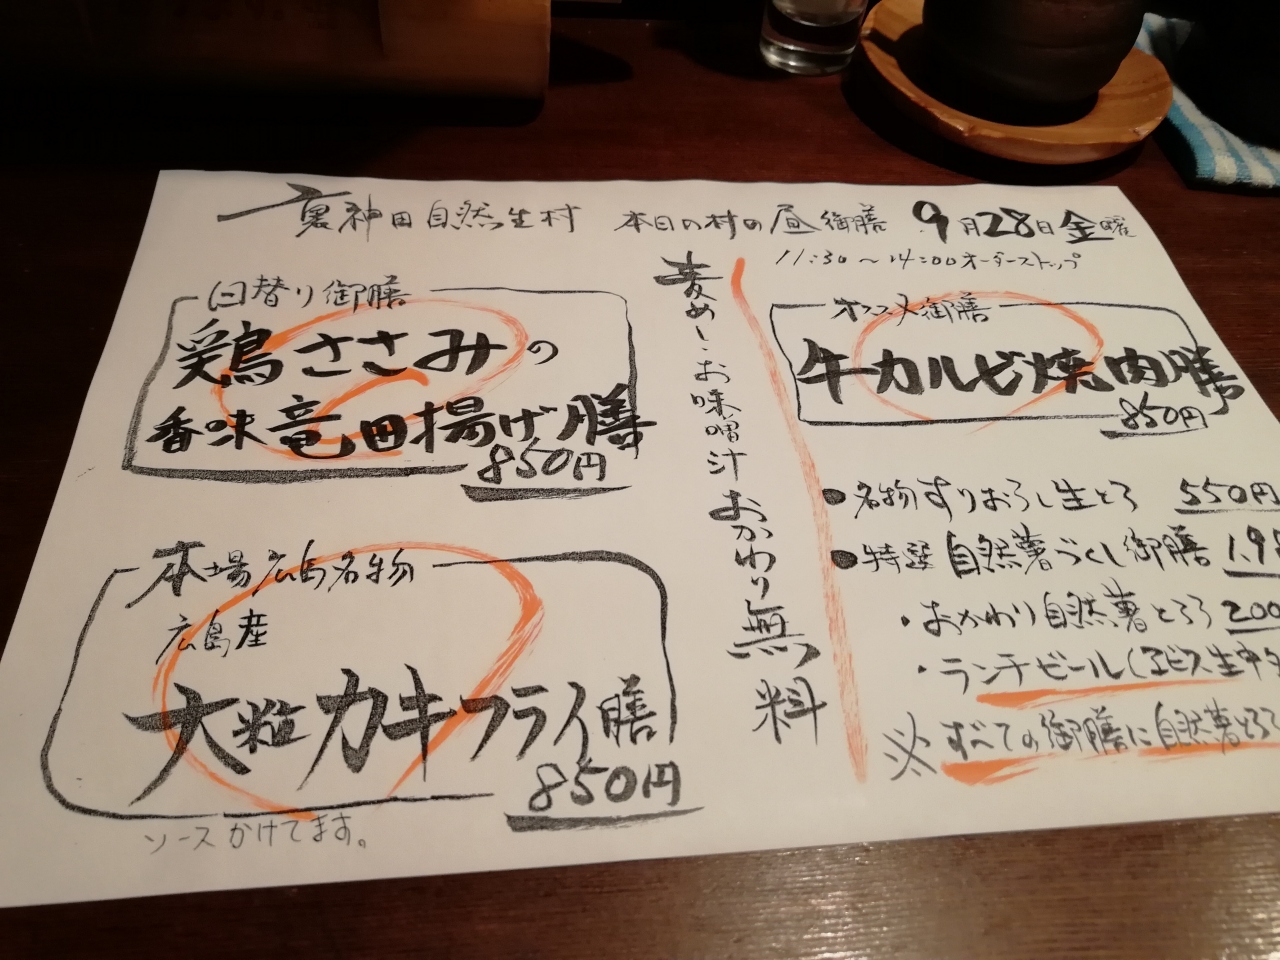 裏神田自然生村 本日の村の昼御膳 9月28日金曜
11:30～14:00オーダーストップ
日替り御膳
鶏ささみの
香味竜田揚げ膳
850円
本場広島名物
広島産
大粒カキフライ膳
850円
ソースかけてます。
麦めし・お味噌汁おかわり無料
オススメ御膳
牛カルビ焼肉膳
850円
●名物すりおろし生とろ 550円
●特選自然薯づくし御膳 1.9
・おかわり自然薯とろろ 200
・ランチビール(ヱビス生中
※すべての御膳に自然薯とろろ